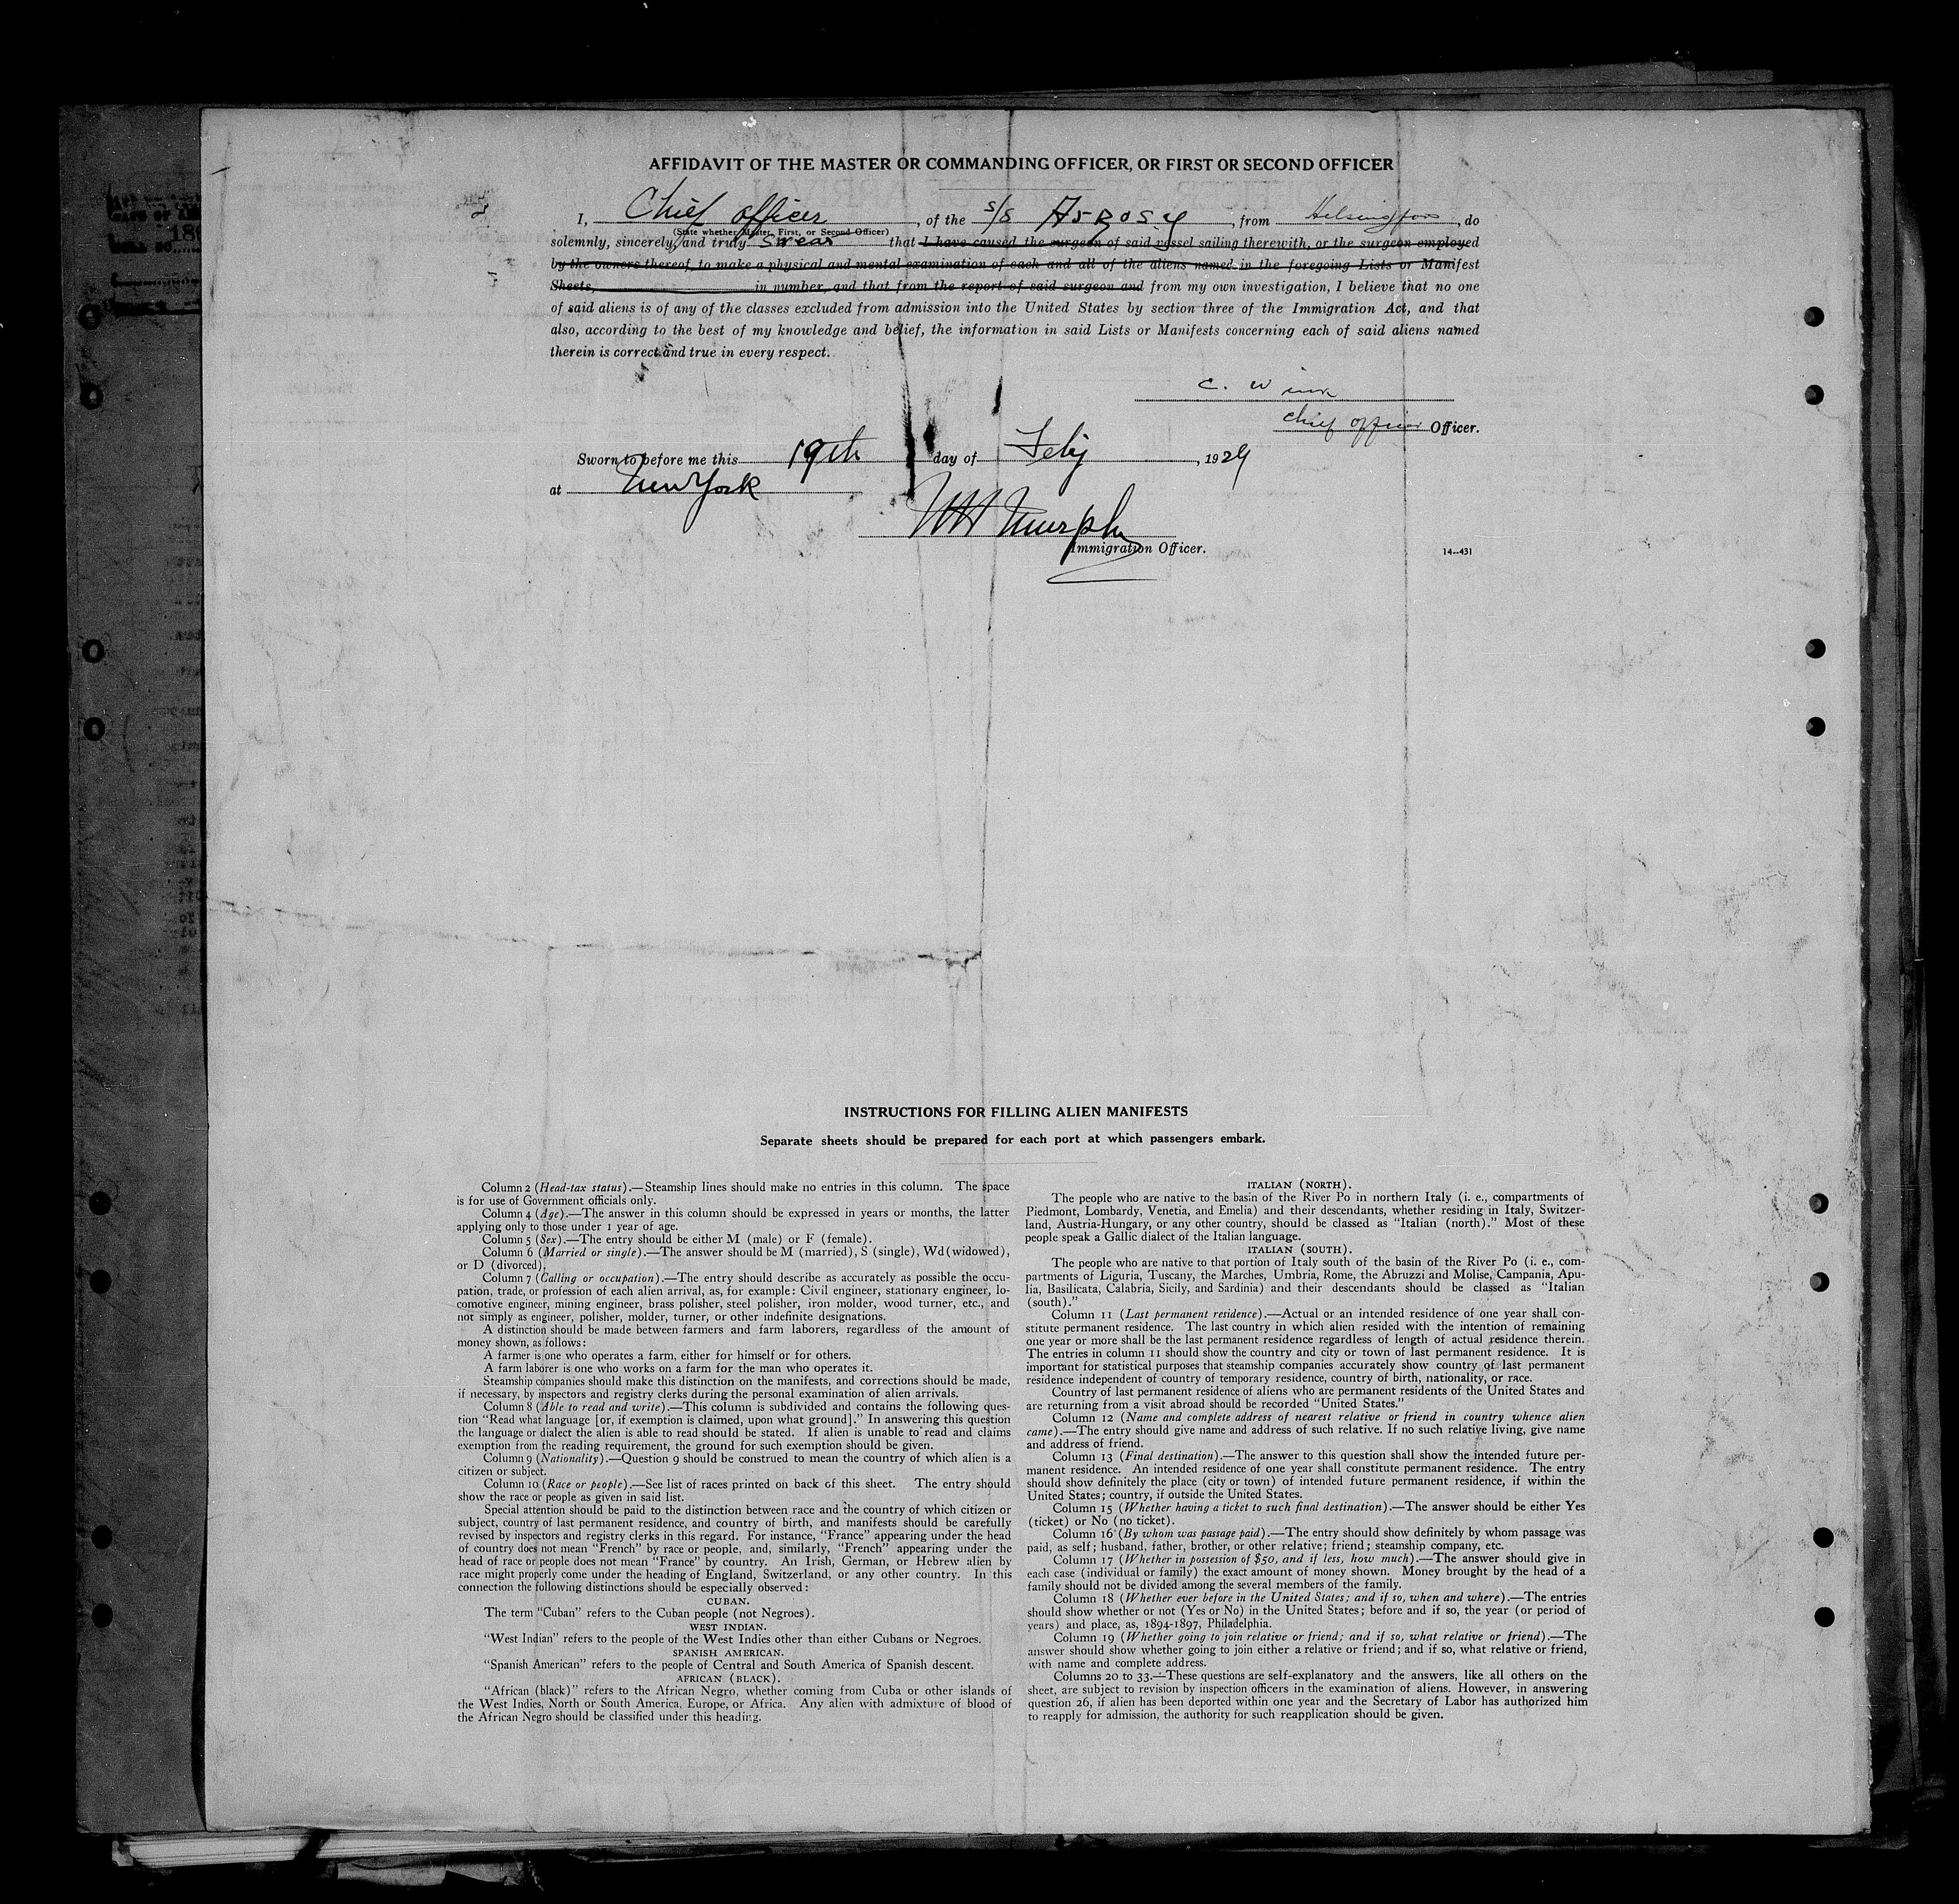 AFFIDAVIT OF THE MASTER OR COMMANDING OFFICER, OR FIRST OR SECOND OFFICER
I, Chief officer, of the S/S from Helsingfors, do
(State whether Master, First, or Second Officer)
solemnly, sincerely, and truly swear that I have caused the surgeon of said vessel sailing therewith, or the surgeon employed
by the owners thereof, to make a physical and mental examination of each and all of the aliens named in the foregoing Lists or Manifest
Sheets, in number, and that from the report of said surgeon and from my own investigation, I believe that no one
of said aliens is of any of the classes excluded from admission into the United States by section three of the Immigration Act, and that
also, according to the best of my knowledge and belief, the information in said Lists or Manifests concerning each of said aliens named
therein is correct and true in every respect.
C.
Chief officer Officer.
Sworn to before me this 19th day of Feby, 1929
at New York
Murphy
Immigration Officer.
14--431
INSTRUCTIONS FOR FILLING ALIEN MANIFESTS
Separate sheets should be prepared for each port at which passengers embark.
Column 2 (Head-tax status).—Steamship lines should make no entries in this column. The space
is for use of Government officials only.
Column 4 (Age).—The answer in this column should be expressed in years or months, the latter
applying only to those under 1 year of age.
Column 5 (Sex).—The entry should be either M (male) or F (female).
Column 6 (Married or single).—The answer should be M (married), S (single), Wd (widowed),
or D (divorced).
Column 7 (Calling or occupation).—The entry should describe as accurately as possible the occu-
pation, trade, or profession of each alien arrival, as, for example: Civil engineer, stationary engineer, lo-
comotive engineer, mining engineer, brass polisher, steel polisher, iron molder, wood turner, etc., and
not simply as engineer, polisher, molder, turner, or other indefinite designations.
A distinction should be made between farmers and farm laborers, regardless of the amount of
money shown, as follows:
A farmer is one who operates a farm, either for himself or for others.
A farm laborer is one who works on a farm for the man who operates it.
Steamship companies should make this distinction on the manifests, and corrections should be made,
if necessary, by inspectors and registry clerks during the personal examination of alien arrivals.
Column 8 (Able to read and write).—This column is subdivided and contains the following ques-
tion "Read what language [or, if exemption is claimed, upon what ground]." In answering this question
the language or dialect the alien is able to read should be stated. If alien is unable to read and claims
exemption from the reading requirement, the ground for such exemption should be given.
Column 9 (Nationality).—Question 9 should be construed to mean the country of which alien is a
citizen or subject.
Column 10 (Race or people).—See list of races printed on back of this sheet. The entry should
show the race or people as given in said list.
Special attention should be paid to the distinction between race and the country of which citizen or
subject, country of last permanent residence, and country of birth, and manifests should be carefully
revised by inspectors and registry clerks in this regard. For instance, "France" appearing under the head
of country does not mean "French" by race or people, and, similarly, "French" appearing under the
head of race or people does not mean "France" by country. An Irish, German, or Hebrew alien by
race might properly come under the heading of England, Switzerland, or any other country. In this
connection the following distinctions should be especially observed:
CUBAN.
The term "Cuban" refers to the Cuban people (not Negroes).
WEST INDIAN.
"West Indian" refers to the people of the West Indies other than either Cubans or Negroes.
SPANISH AMERICAN.
"Spanish American" refers to the people of Central and South America of Spanish descent.
AFRICAN (BLACK).
"African (black)" refers to the African Negro, whether coming from Cuba or other islands of
the West Indies, North or South America, Europe, or Africa. Any alien with admixture of blood of
the African Negro should be classified under this heading.
ITALIAN (NORTH).
The people who are native to the basin of the River Po in northern Italy (i. e., compartments of
Piedmont, Lombardy, Venetia, and Emelia) and their descendants, whether residing in Italy, Switzer-
land, Austria-Hungary, or any other country, should be classed as "Italian (north)." Most of these
people speak a Gallic dialect of the Italian language.
ITALIAN (SOUTH).
The people who are native to that portion of Italy south of the basin of the River Po (i. e., com-
partments of Liguria, Tuscany, the Marches, Umbria, Rome, the Abruzzi and Molise, Campania, Apu-
lia, Basilicata, Calabria, Sicily, and Sardinia) and their descendants should be classed as "Italian
(south)."
Column 11 (Last permanent residence).—Actual or an intended residence of one year shall con-
stitute permanent residence. The last country in which alien resided with the intention of remaining
one year or more shall be the last permanent residence regardless of length of actual residence therein.
The entries in column 11 should show the country and city or town of last permanent residence. It is
important for statistical purposes that steamship companies accurately show country of last permanent
residence independent of country of temporary residence, country of birth, nationality, or race.
Country of last permanent residence of aliens who are permanent residents of the United States and
are returning from a visit abroad should be recorded "United States."
Column 12 (Name and complete address of nearest relative or friend in country whence alien
came).—The entry should give name and address of such relative. If no such relative living, give name
and address of friend.
Column 13 (Final destination).—The answer to this question shall show the intended future per-
manent residence. An intended residence of one year shall constitute permanent residence. The entry
should show definitely the place (city or town) of intended future permanent residence, if within the
United States; country, if outside the United States.
Column 15 (Whether having a ticket to such final destination).—The answer should be either Yes
(ticket) or No (no ticket).
Column 16 (By whom was passage paid).—The entry should show definitely by whom passage was
paid, as self; husband, father, brother, or other relative; friend; steamship company, etc.
Column 17 (Whether in possession of $50, and if less, how much).—The answer should give in
each case (individual or family) the exact amount of money shown. Money brought by the head of a
family should not be divided among the several members of the family.
Column 18 (Whether ever before in the United States; and if so, when and where).—The entries
should show whether or not (Yes or No) in the United States; before and if so, the year (or period of
years) and place, as, 1894-1897, Philadelphia.
Column 19 (Whether going to join relative or friend; and if so, what relative or friend).—The
answer should show whether going to join either a relative or friend; and if so, what relative or friend,
with name and complete address.
Columns 20 to 33.—These questions are self-explanatory and the answers, like all others on the
sheet, are subject to revision by inspection officers in the examination of aliens. However, in answering
question 26, if alien has been deported within one year and the Secretary of Labor has authorized him
to reapply for admission, the authority for such reapplication should be given.